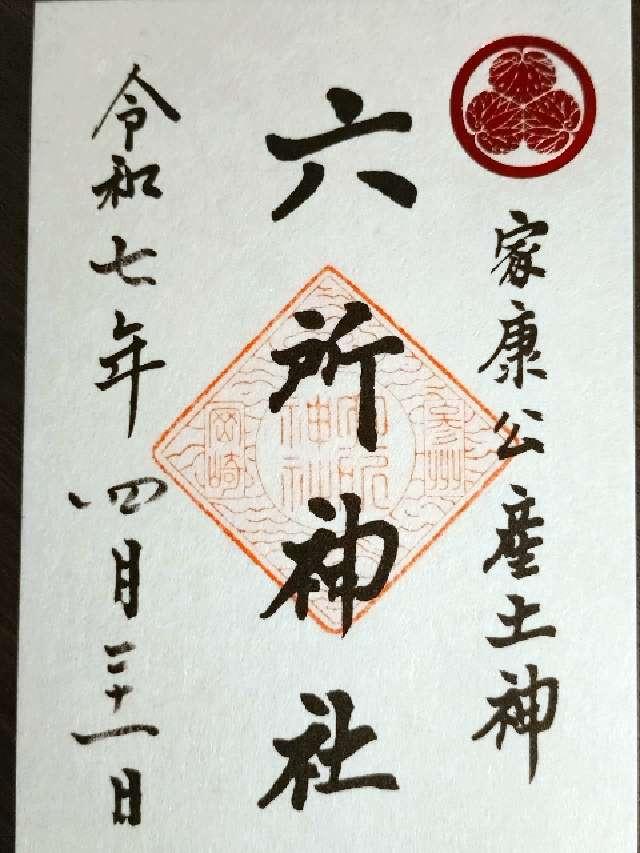 家康公産土神
六所神社
参州
六所神社
岡崎
令和七年四月二十一日